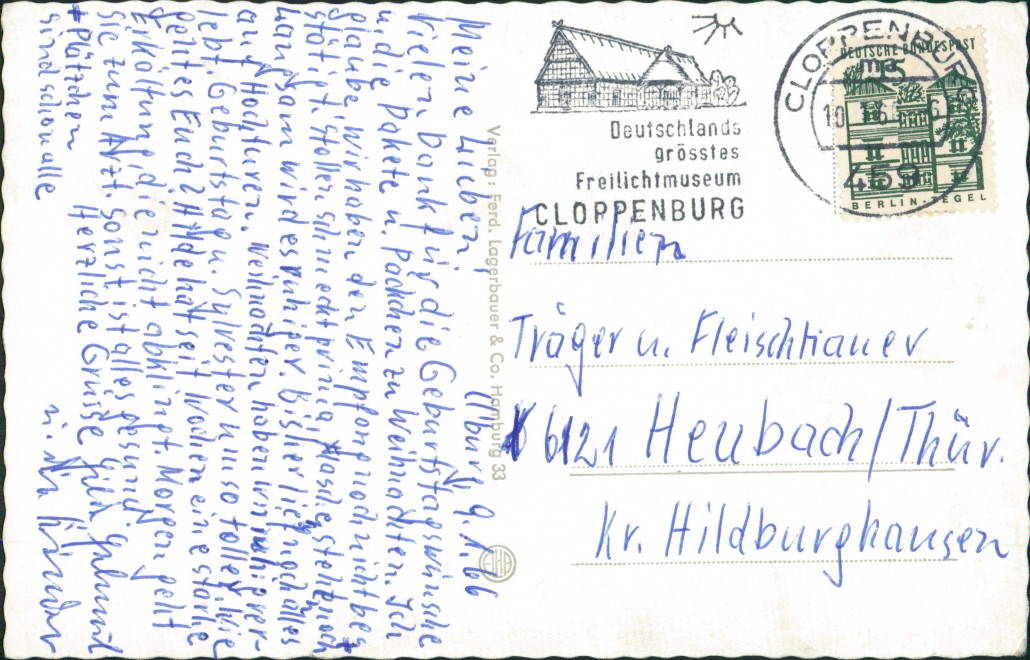 Deutschlands
grösstes
Freilichtmuseum
CLOPPENBURG
CLOPPENBURG
459
DEUTSCHE BUNDESPOST
15
BERLIN-TEGEL
Familien
Träger u. Fleischhauer
6121 Heubach/Thür.
Kr. Hildburghausen
Verlag: Ferd. Lagerbauer & Co. Hamburg 33
9.1.66
Meine Lieben,
Vielen Dank für die Geburtstagswünsche
u. die Pakete u. Päckchen zu Weihnachten. Ich
glaube, wir haben den Empfang noch nicht bes
tätigt. Stollen schmeckt prima, stehen noch
Langsam wird es ruhiger. Bisher lief noch alles
auf Hochturen. Weihnachten haben wir
lebt, Geburtstag u. Sylvester um so toller. Wie
geht es Euch? Hilde hat seit Wochen eine starke
Erkältung, die nicht abklingt. Morgen geht
sie zum Arzt. Sonst ist alles gesund
Herzliche Grüsse
+ Plätzchen
sind schon alle
u. die Kinder